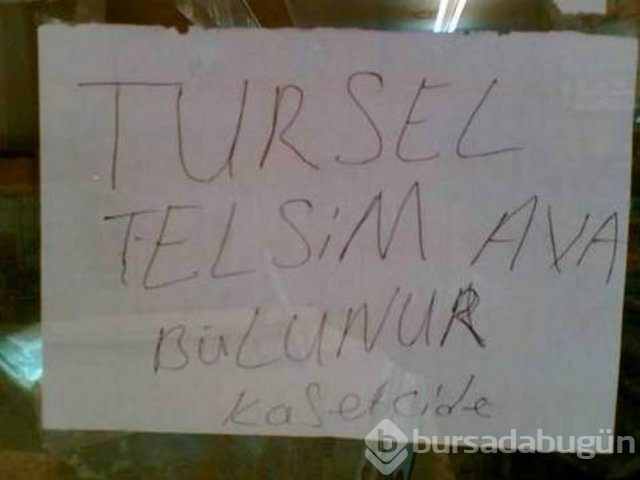 TURSEL
TELSiM AVA
BÜLUNUR
Kasetcide
bursadabugün